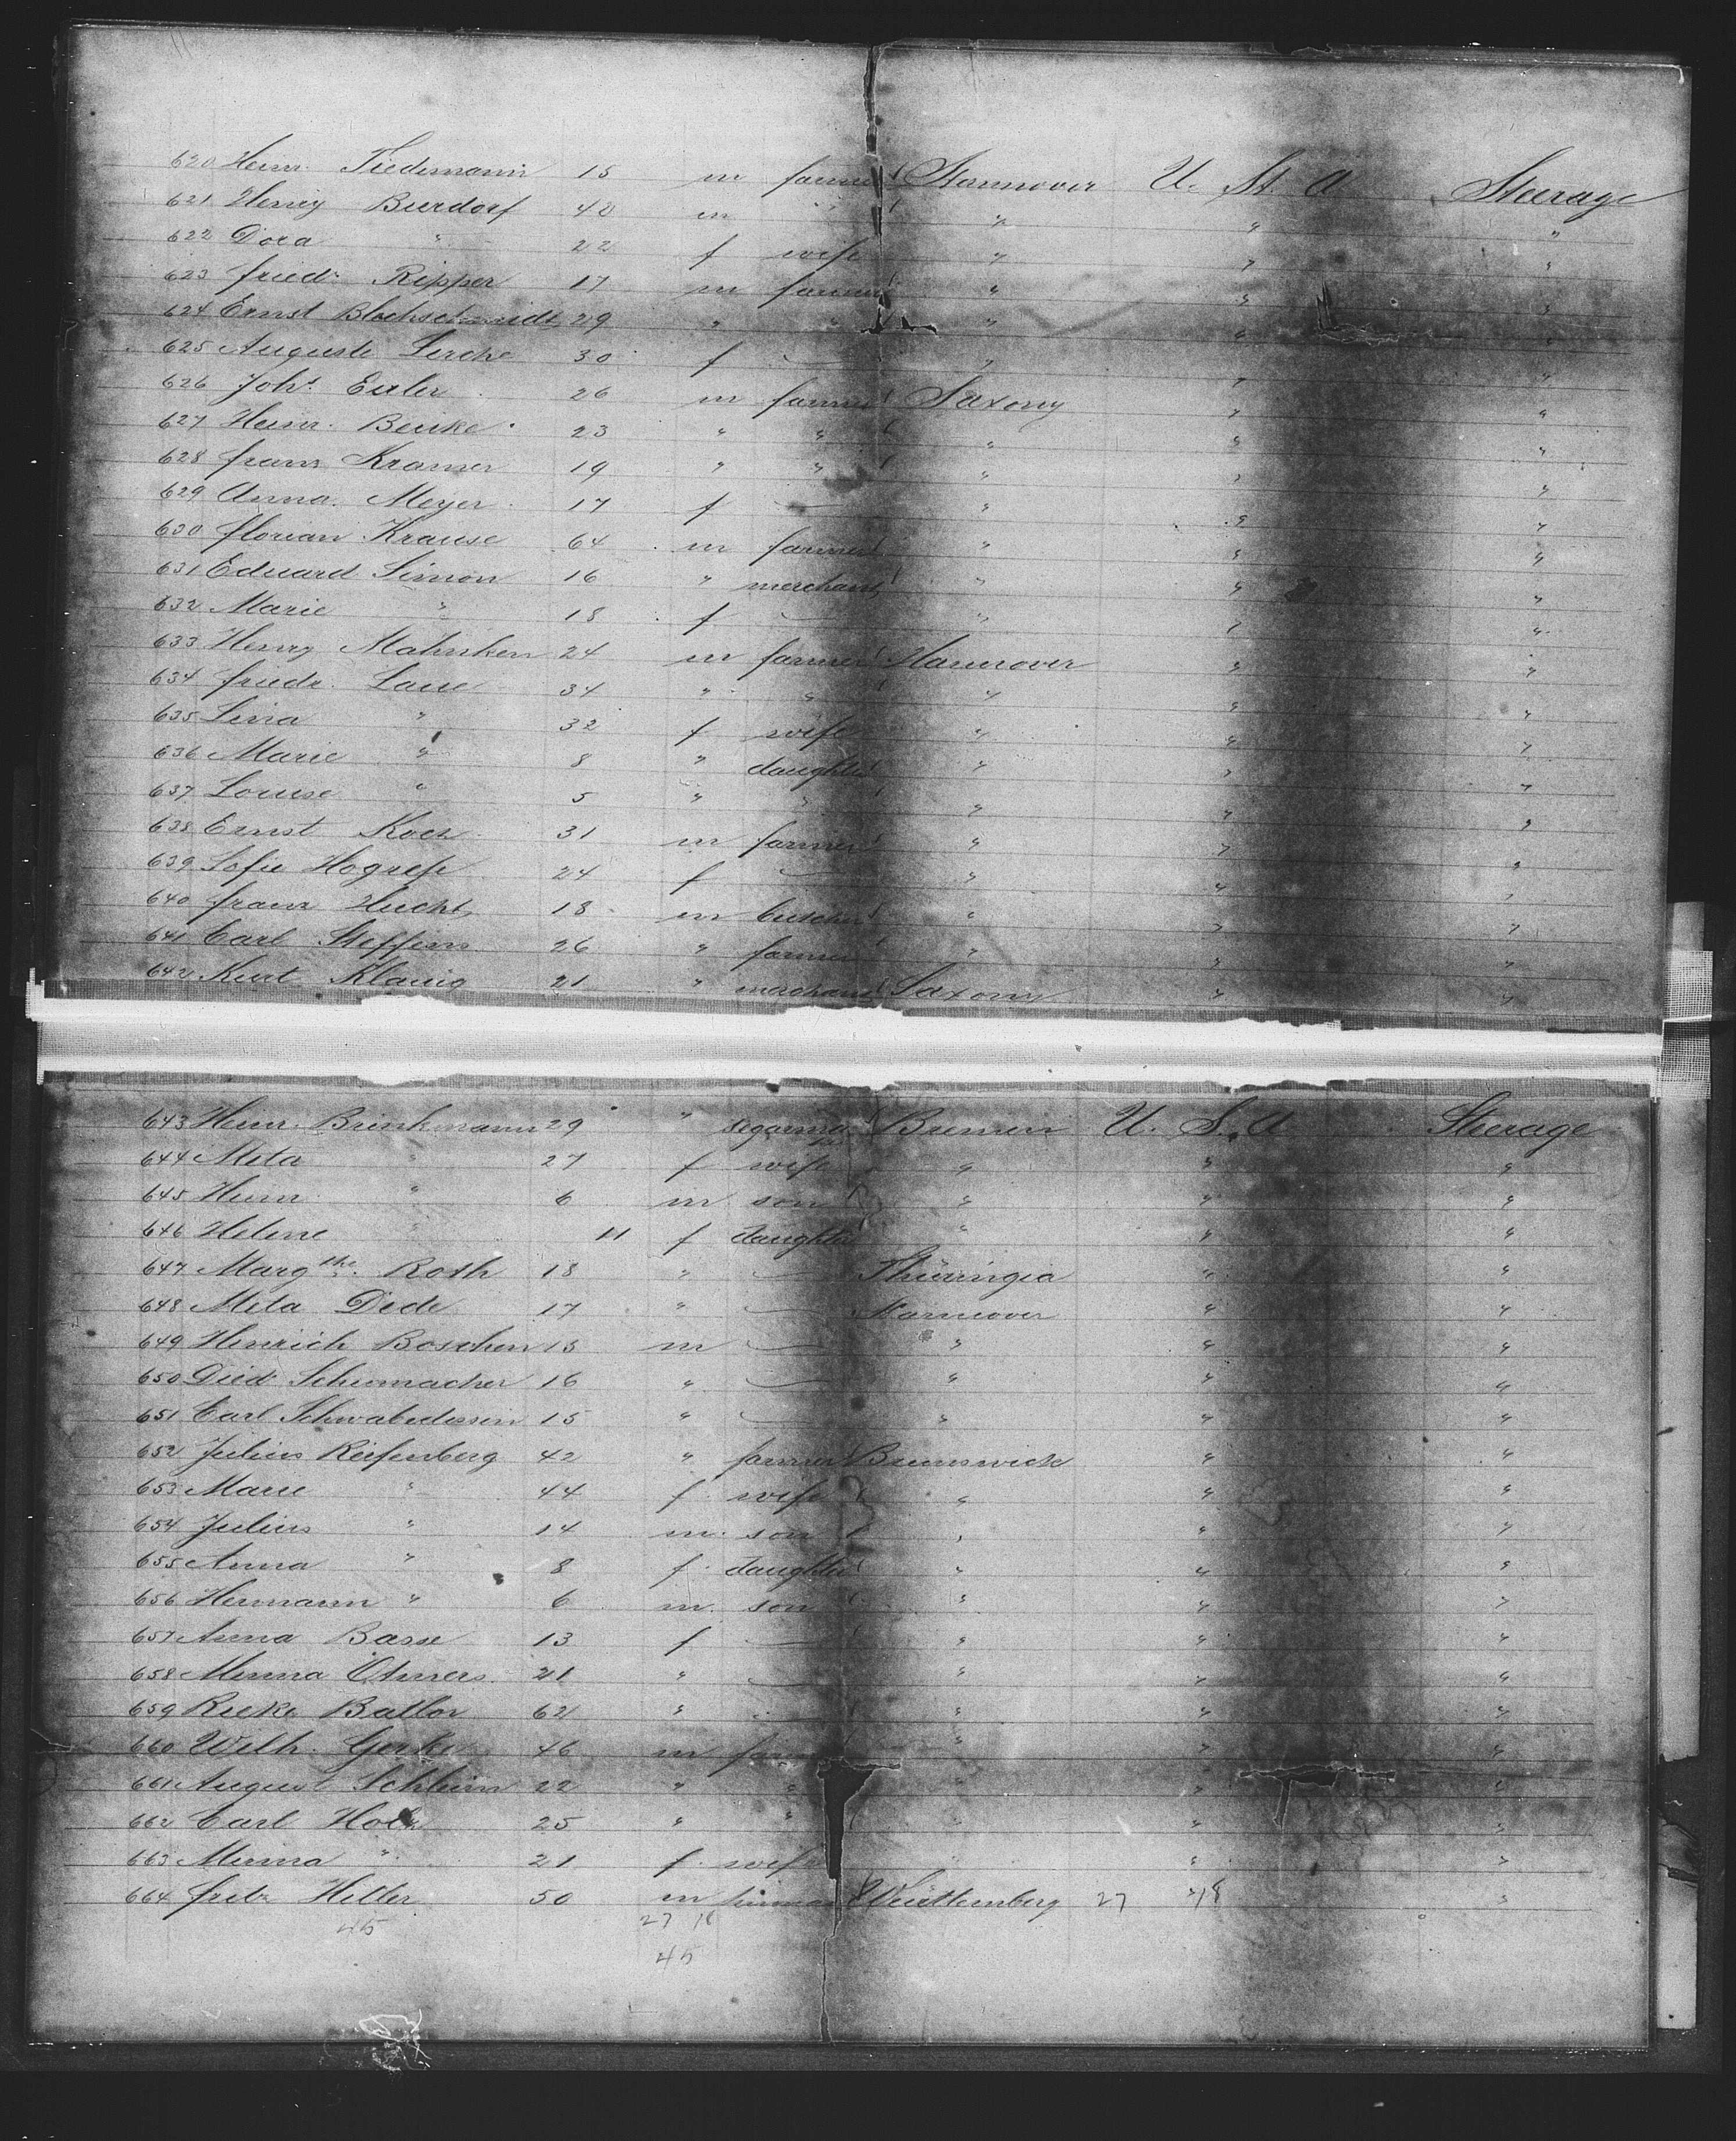 620 Heinr. Tiedemann 15 m farmer Hannover U. St. A Steerage
621 Henry Burdorf 40 m " " " "
622 Dora " 22 f wife " " "
623 friedr. Ripper 17 m farmer " " "
624 Ernst Blechschmidt 29 " " " " "
625 Auguste Lerche 30 f — " " "
626 Johs. Euler 26 m farmer Saxony " "
627 Heinr. Beuke 23 " " " " "
628 franz Kramer 19 " " " " "
629 Anna Meyer 17 f — " " "
630 florian Krause 64 m farmer " " "
631 Eduard Simon 16 " merchant " " "
632 Marie " 18 f — " " "
633 Henry Mahnken 24 m farmer Hannover " "
634 friedr. Laue 34 " " " " "
635 Lina " 32 f wife " " "
636 Marie " 8 " daughter " " "
637 Louise " 5 " " " " "
638 Ernst Koch 31 m farmer " " "
639 Sofie Hogrefe 24 f — " " "
640 franz Hucht 18 m butcher " " "
641 Carl Steffens 26 " farmer " " "
642 Kurt Klauig 21 " merchant Saxony " "
643 Heinr. Brinkmann 29 " Bremen U. S. A Steerage
644 Meta " 27 f wife " " "
645 Heinr. " 6 m son " " "
646 Helene " 11 f daughter " " "
647 Margthe. Roth 18 " — Thüringia " "
648 Meta Dede 17 " — Hannover " "
649 Heinrich Boschen 15 m — " " "
650 Died. Schumacher 16 " — " " "
651 Carl Schwabedissen 15 " — " " "
652 Julius Reifenberg 42 " farmer Brunswick " "
653 Marie " 44 f wife " " "
654 Julius " 14 m son " " "
655 Anna " 8 f daughter " " "
656 Hermann " 6 m son " " "
657 Anna Basse 13 f — " " "
658 Minna Ohmers 21 " — " " "
659 Rieke Ballor 62 " — " " "
660 Wilh. Gerke 46 m farmer " " "
661 August Schlüm 22 " " " " "
662 Carl Holz 25 " " " " "
663 Minna " 21 f wife " " "
664 fritz Heller 50 m Württemberg 27 18 "
45 27 18
45